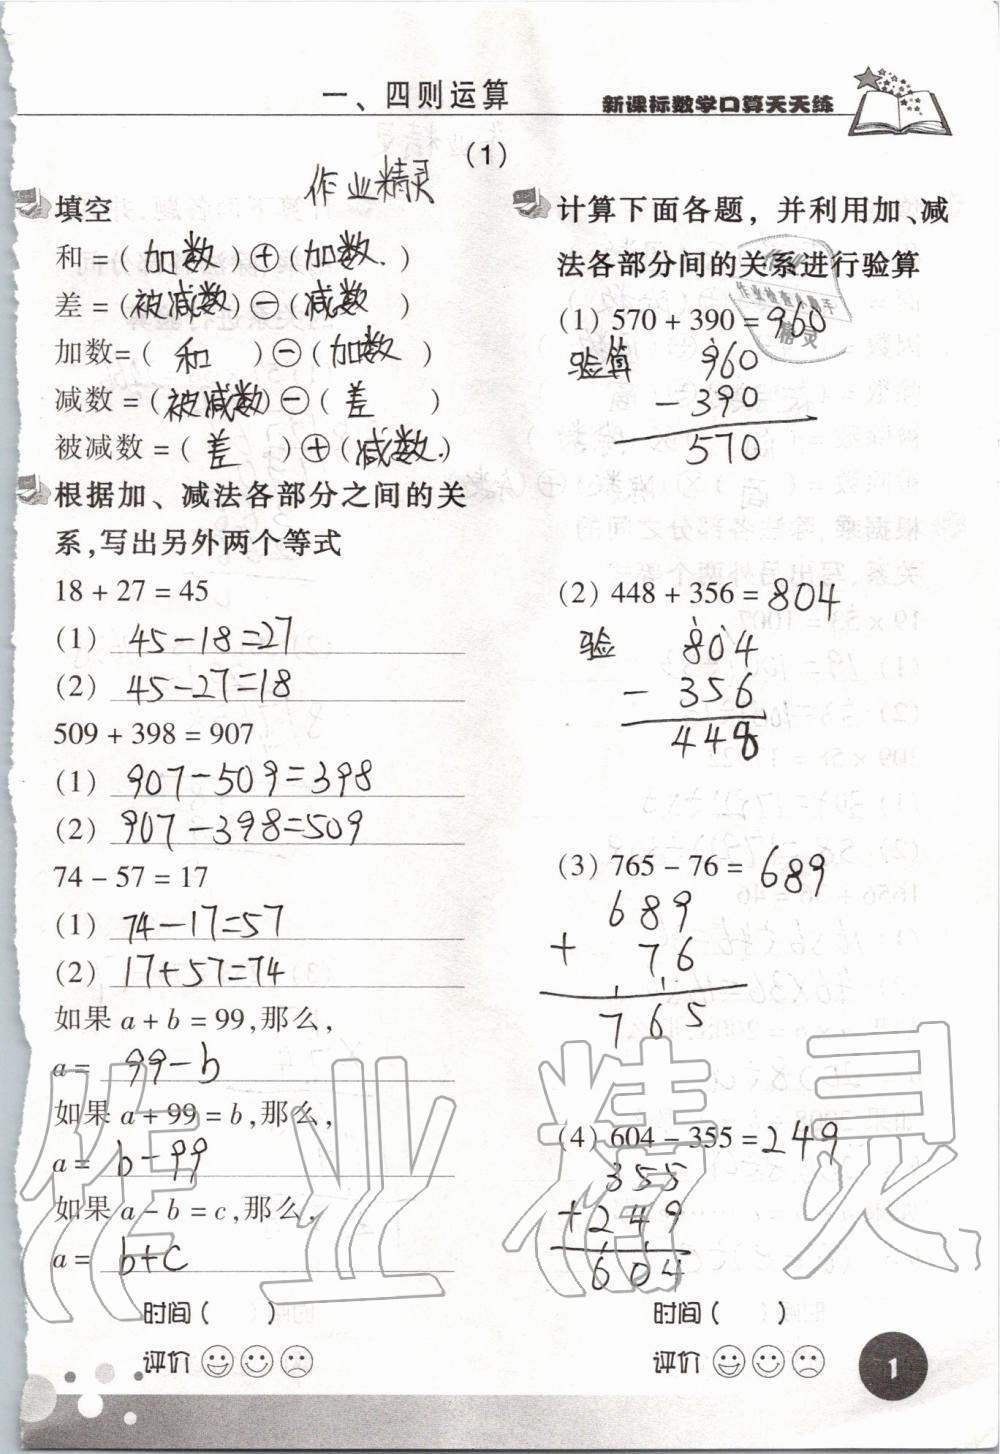 一、四则运算
新课标数学口算天天练
(1)
作业精灵
填空
和=(加数)⊕(加数.)
差=(被减数)⊖(减数)
加数=(和)⊖(加数)
减数=(被减数)⊖(差)
被减数=(差)⊕(减数.)
根据加、减法各部分之间的关
系,写出另外两个等式
18+27=45
(1) 45-18=27
(2) 45-27=18
509+398=907
(1) 907-509=398
(2) 907-398=509
74-57=17
(1) 74-17=57
(2) 17+57=74
如果a+b=99,那么,
a= 99-b
如果a+99=b,那么,
a= b-99
如果a-b=c,那么,
a= b+c
时间( )
评价
计算下面各题，并利用加、减
法各部分间的关系进行验算
(1) 570+390=960
验算 960
-390
570
(2) 448+356=804
验 804
-356
448
(3) 765-76=689
689
+ 76
765
(4) 604-355=249
355
+249
604
时间( )
评价
1
作业精灵